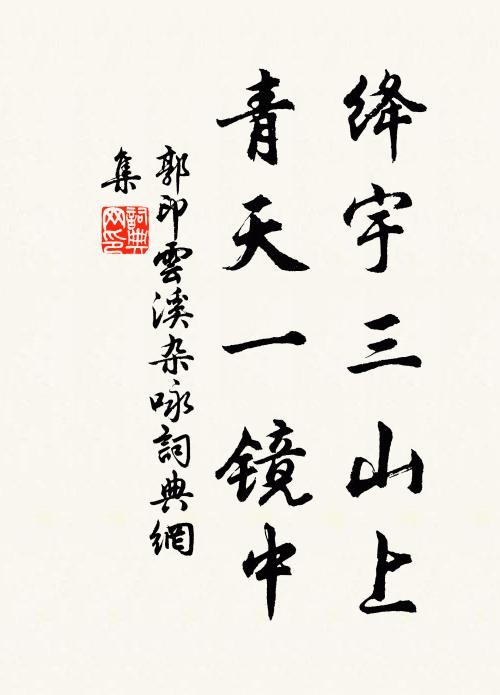 绛宇三山上
青天一镜中
郭印雲溪杂咏詞典網
集
詞典
网印